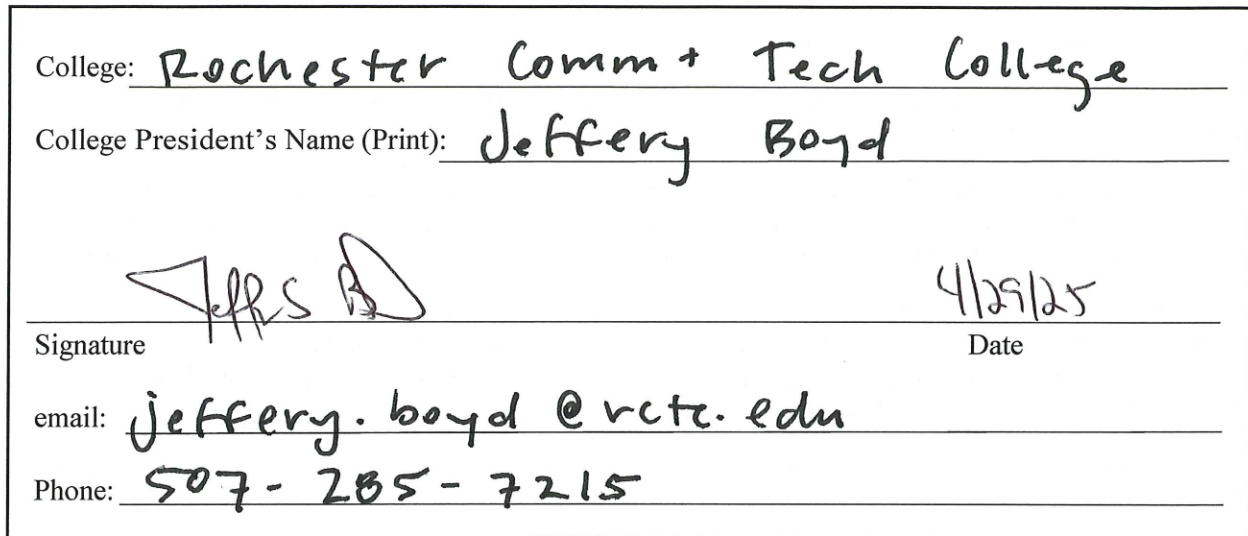 College: Rochester Comm + Tech College
College President's Name (Print): Jeffery Boyd
Jeff S B 4/29/25
Signature Date
email: jeffery.boyd@rctc.edu
Phone: 507-285-7215